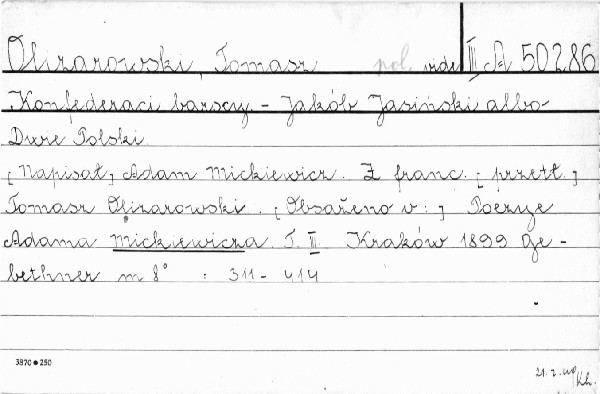 Olizarowski, Tomasz pol. III A 50286
Konfederaci barscy. - Jakób Jasiński albo
Dwie Polski.
[Napisał] Adam Mickiewicz. Z franc. [przetł.]
Tomasz Olizarowski. [Obsaženo v:] Poezye
Adama Mickiewicza. T. III. Kraków 1899 Ge-
bethner m 8° : 311-414
3870 • 250